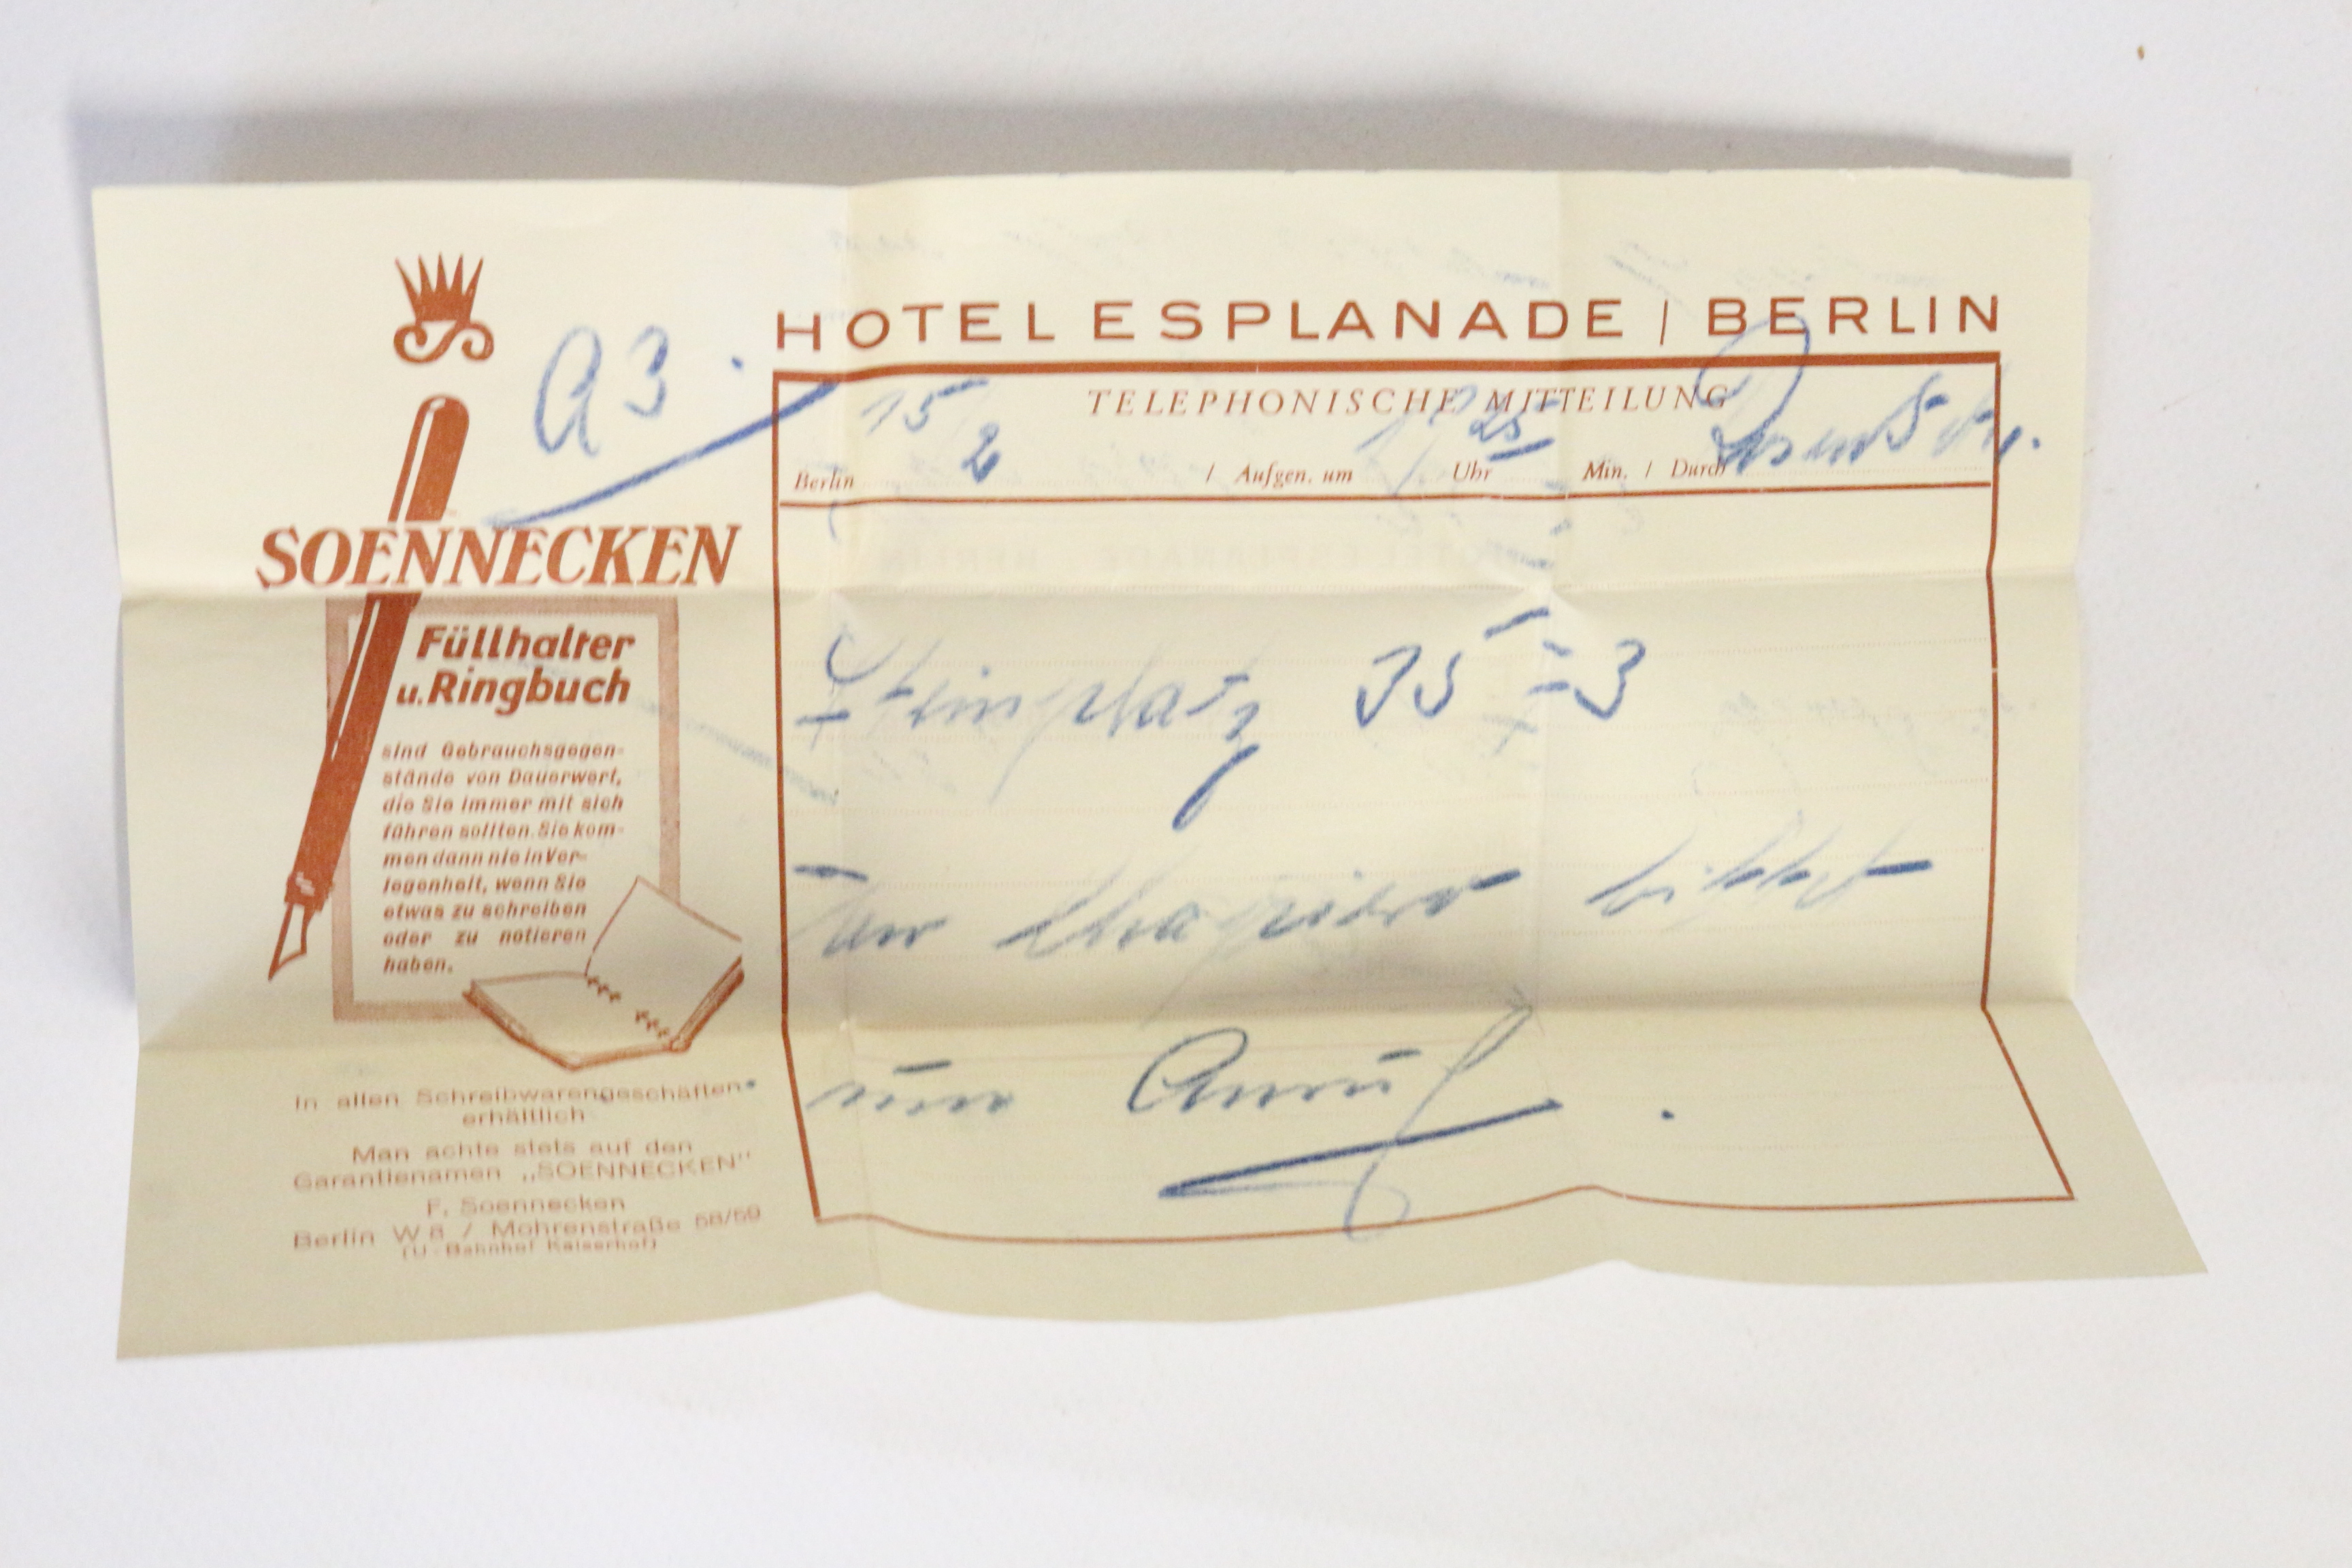 HOTEL ESPLANADE | BERLIN
A3.
TELEPHONISCHE MITTEILUNG
15/2
Berlin / Aufgen. um 25 Uhr Min. / Durch
Steinplatz
bittet
um Anruf.
SOENNECKEN
Füllhalter
u. Ringbuch
sind Gebrauchsgegen-
stände von Dauerwert,
die Sie immer mit sich
führen sollten. Sie kom-
men dann nie in Ver-
legenheit, wenn Sie
etwas zu schreiben
oder zu notieren
haben.
In allen Schreibwarengeschäften
erhältlich
Man achte stets auf den
Garantienamen „SOENNECKEN"
F. Soennecken
Berlin W 8 / Mohrenstraße 58/59
(U-Bahnhof Kaiserhof)